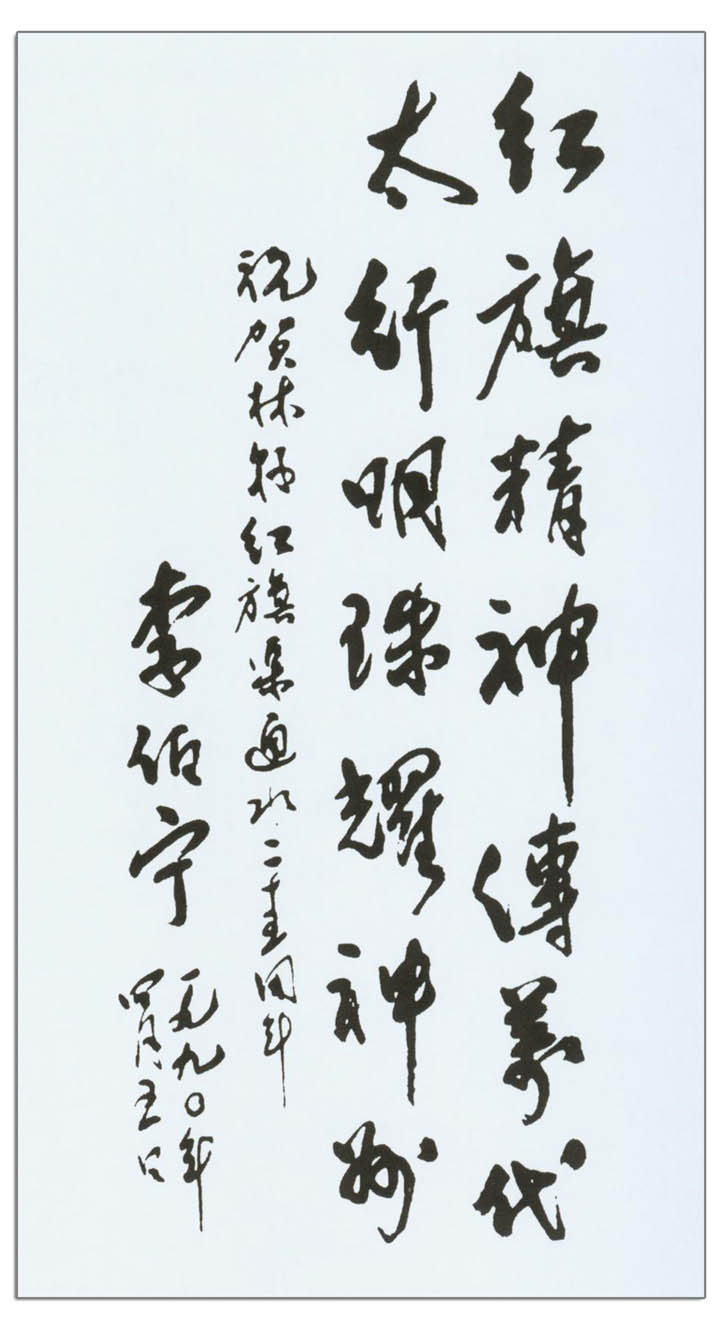 红旗精神傳萬代
太行明珠耀神州
祝贺林县红旗渠通水二十五周年
李伯宁
一九九〇年
四月五日